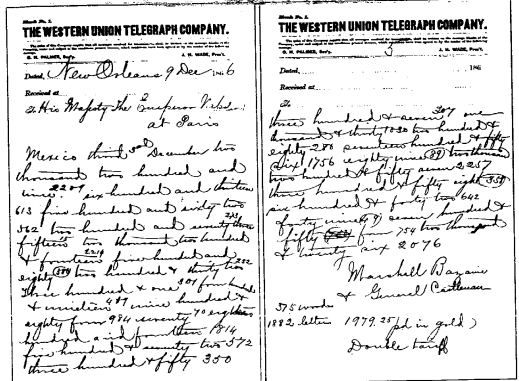 March No. 1.
THE WESTERN UNION TELEGRAPH COMPANY.
O. H. PALMER, Sec'y. J. H. WADE, Pres't.
Dated, New Orleans 9 Dec 1866
Received at
To His Majesty The Emperor
at Paris
Mexico third 3rd December two
thousand two hundred and
nine 2209 six hundred and thirteen
613 five hundred and sixty two
562 two hundred and seventy three 273
fifteen two thousand two hundred
& fourteen 2214 five hundred and
eighty two hundred & thirty two 232
Three hundred & one 301 four hundred
& nineteen 419 nine hundred &
eighty four 984 seventy 70 eighteen
hundred and fourteen 1814
five hundred & seventy two 572
three hundred & fifty 350
March No. 1.
THE WESTERN UNION TELEGRAPH COMPANY.
O. H. PALMER, Sec'y. J. H. WADE, Pres't.
Dated, 186
Received at
To
three hundred & seven 307 one
thousand & thirty 1030 two hundred &
eighty 280 seventeen hundred & fifty
six 1756 eighty nine (89) two thousand
two hundred & fifty seven 2257
three hundred & fifty eight 358
six hundred & forty two 642
forty nine (49) seven hundred &
fifty four 754 two thousand
& twenty six 2076
Marshall Bazaine
& General Castelnau
375 words
1882 letters 1979.25 (pd in gold)
Double tariff